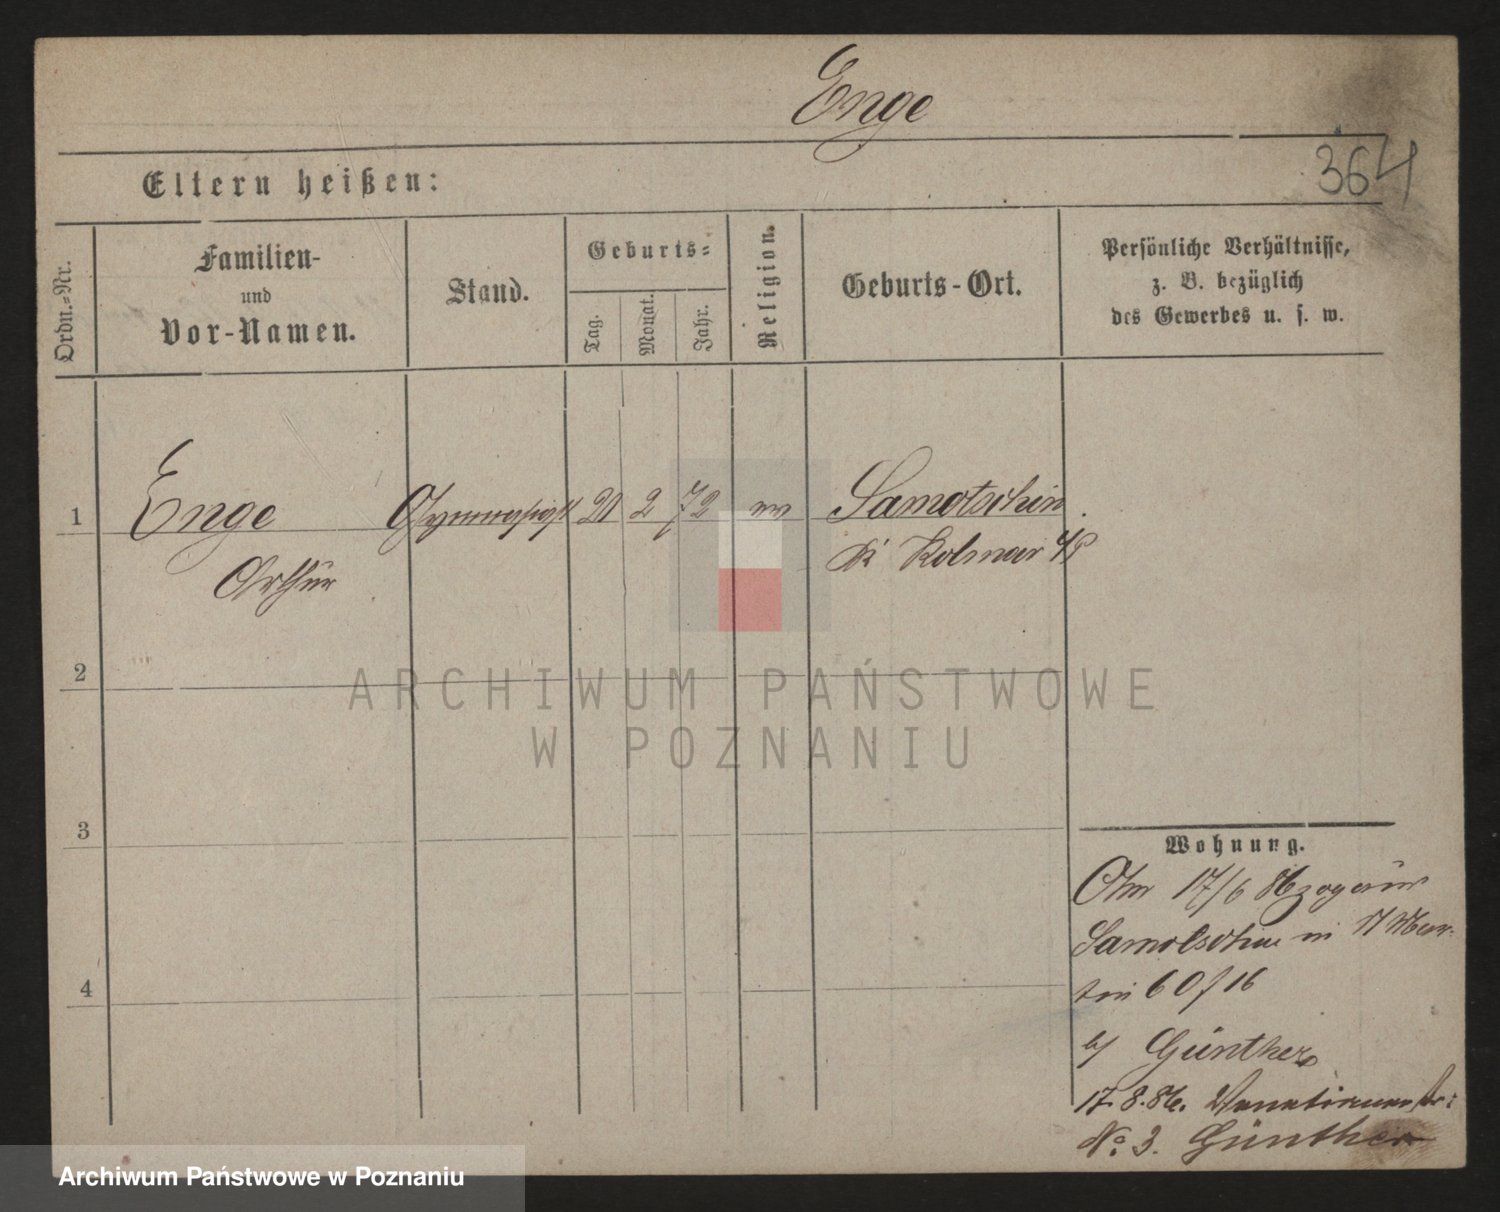 Enge
364
Eltern heißen:
Ordn.-Nr.
Familien-
und
Vor-Namen.
Stand.
Geburts-
Tag.
Monat.
Jahr.
Religion.
Geburts-Ort.
Persönliche Verhältnisse,
z. B. bezüglich
des Gewerbes u. s. w.
1 Enge Gymnasiast 20 2 72 ev Samotschin
Arthur Kr Kolmar
2
3
4
Wohnung.
Am 17/6 86 zogen
Samotschin in St Mar-
tin 60 / 16
b/ Günther
17.8.86.
No. 3. Günther
ARCHIWUM PAŃSTWOWE
W POZNANIU
Archiwum Państwowe w Poznaniu